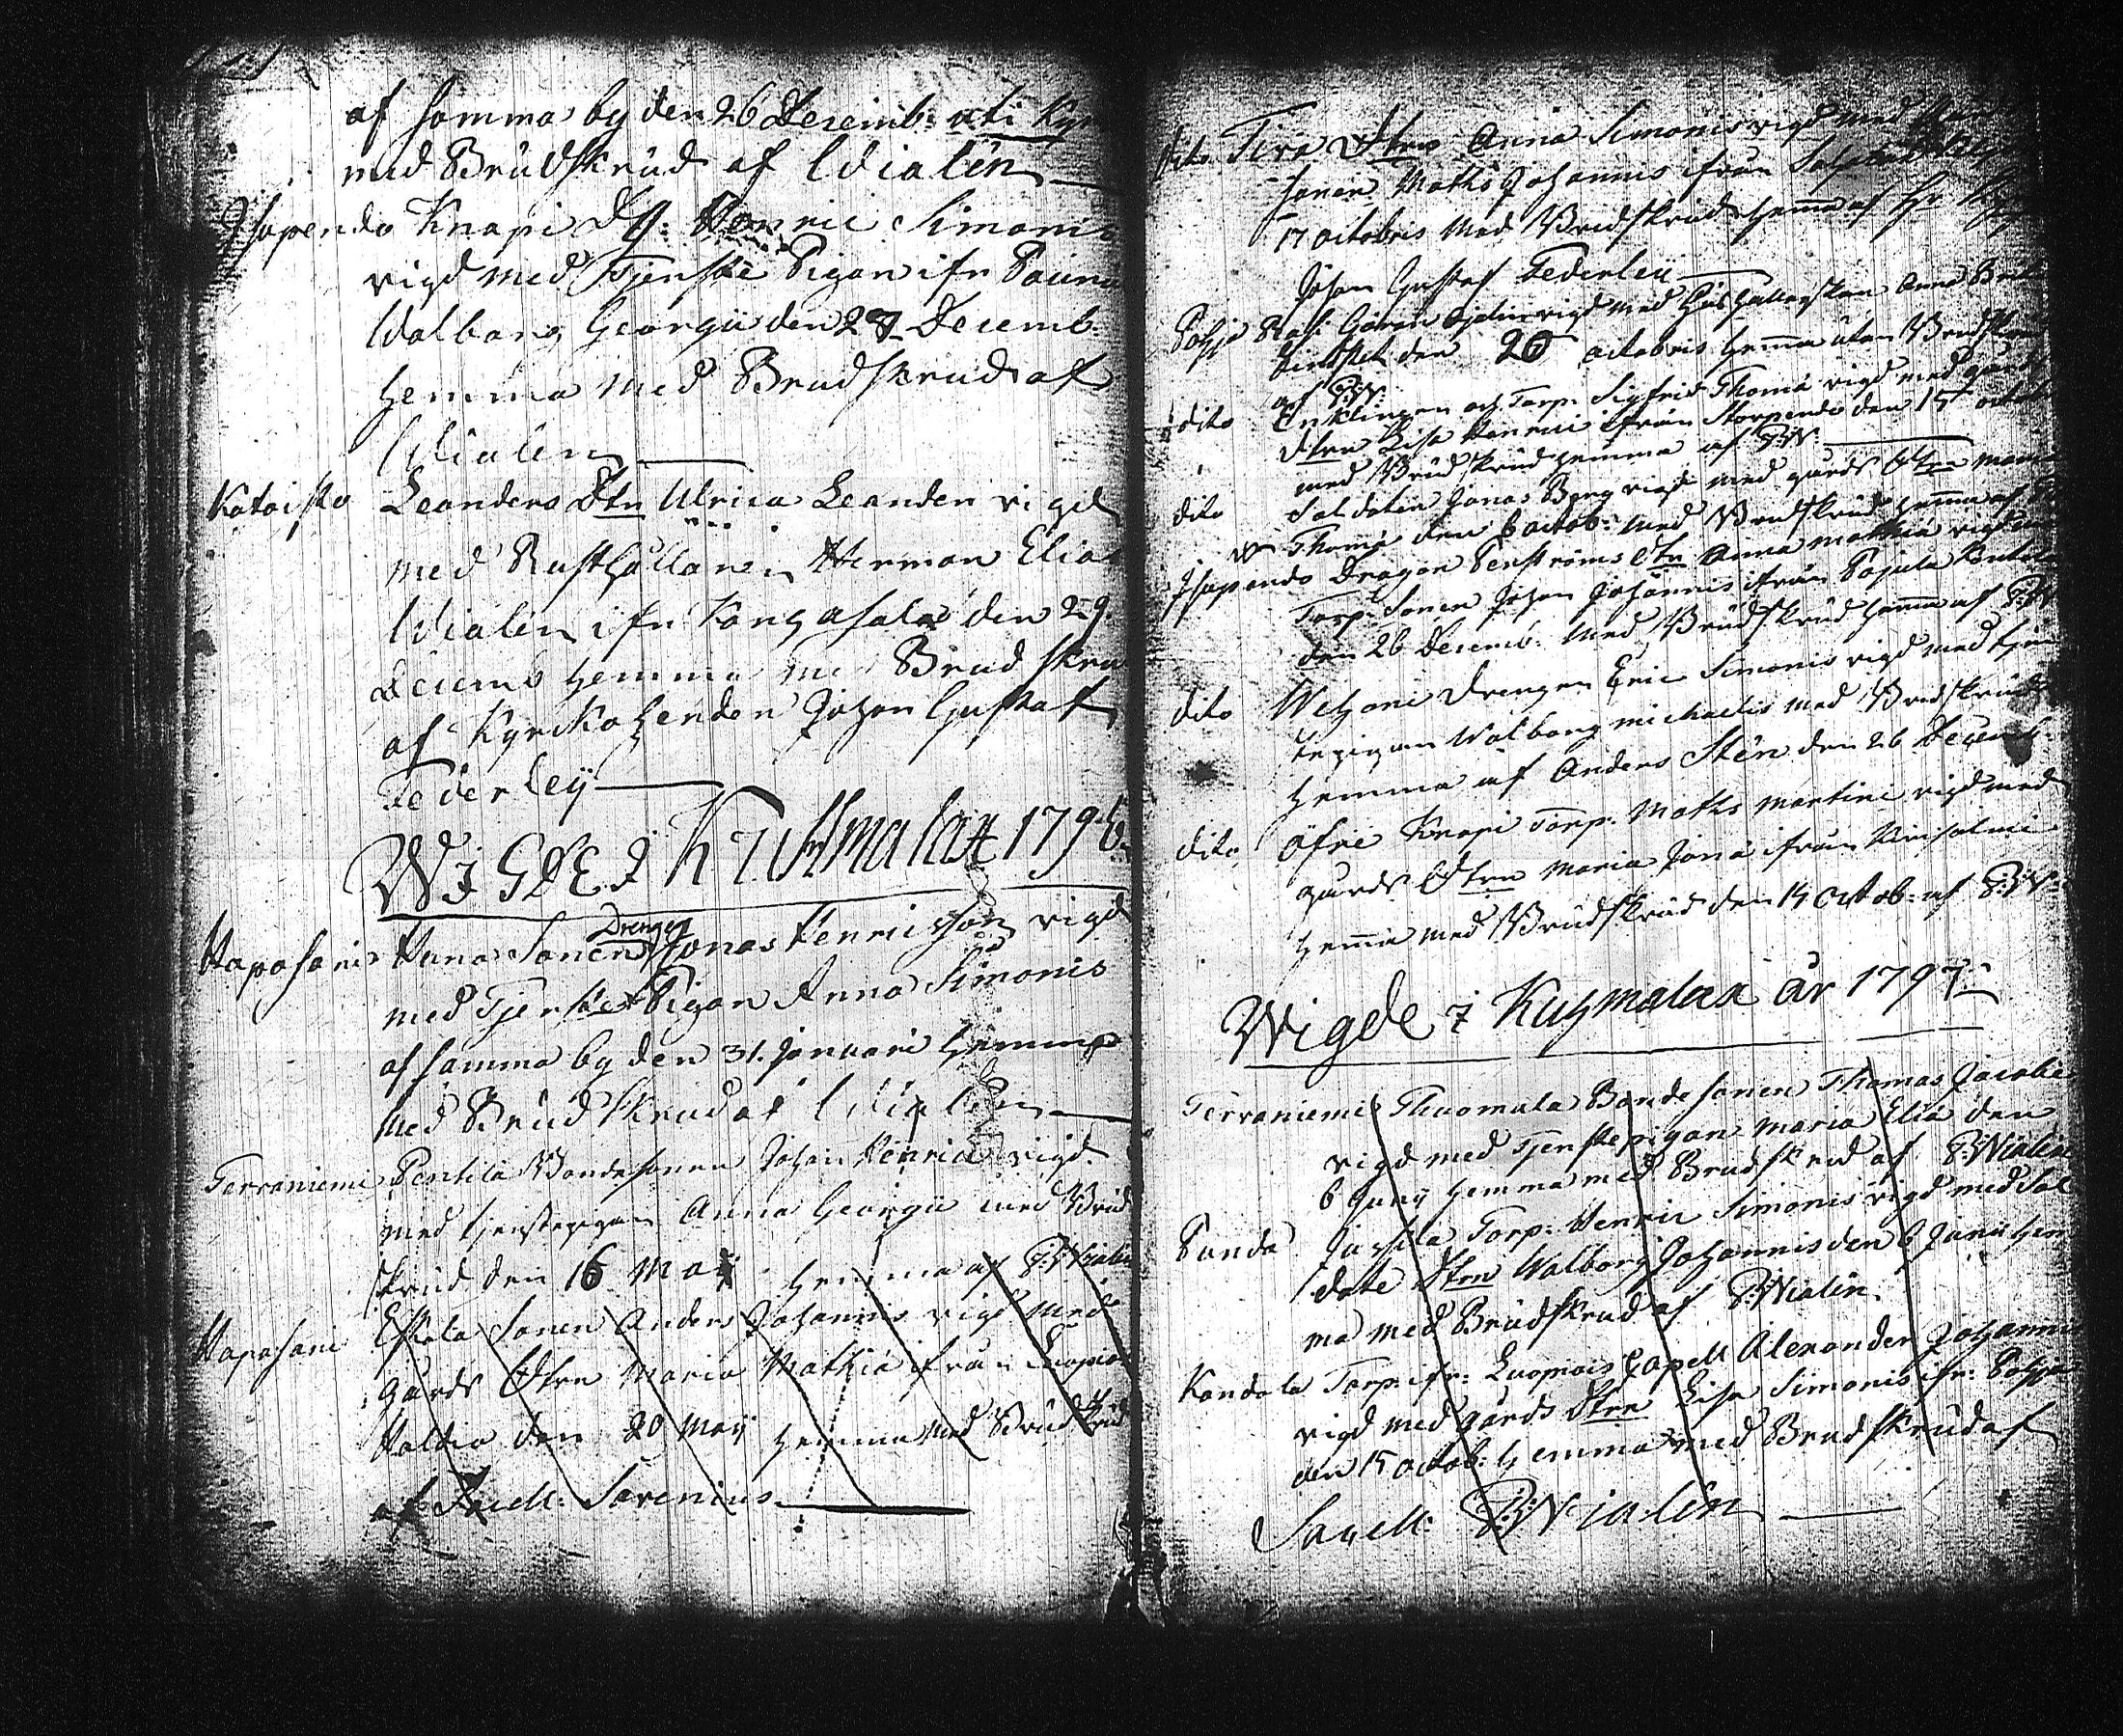 af samma by den 26 Decemb: uti Kyr
med Brudskrud af Wialén
Isopendo Knapi Dg: Henric Simonis
vigd med Tjenste Pigan ifr
Walborg Georgii den 28 Decemb.
hemma med Brudskrud af
Wialén
Kataisto Leanders Dtn Ulrica Leander vigd
med Rusthållaren Herman Elias
Wialén ifr Kangasala den 29.
Decemb hemma med Brudskru
af Kyrckoherden Johan Gustaf
Federleÿ
WIGDE I KUHmalax 1796.
Haposari Sonen Drengen Jonas Henricsson vigd
med Tjenste Pigan Anna Simonis
af samma by den 31. Januari hemma
med Brudskrud af Wialén
Terraniemi Pentilä Bondesonen Johan Henrici vigd
med tjenstepigan Anna Georgii med Brud
skrud den 16 Maÿ hemma af P:Wialén
Haposari Eskola Sonen Anders Johannis vigd med
gårds Dtrn Maria Mathiæ ifrån
den 20 Maÿ hemma med Brudskrud
af Sacell: Sarenius
dito Dtrn Anna Simonis vigd med
sonen Maths Johannis ifrån
17 octobris med Brudskrud hemma af Hr
Johan Gustaf Federleÿ
Pohja vigd med Hushållerskan Anna
den 20 octobris hemma utan Brudskrud
af P:W:
dito Enklingen och Torp: Sigfrid Thomæ vigd med gårds
Dtrn Lisa Henrici ifrån Storpendo den 15 octob
med Brudskrud hemma af P:W:
dito Soldaten Jonas Berg vigd med gårds Dtrn
Thomæ den 6 octob: med Brudskrud hemma af
Isopendo Dragon Dtn Anna Mathiæ vigd
Torp: Sonen Johan Johannis ifrån
den 26 Decemb. med Brudskrud hemma af P:W
dito Drengen Eric Simonis vigd med tjen
stepigan Walborg Michaelis med Brudskrud
hemma af Anders Stén den 26 Decemb.
dito Öfre Knapi Torp: Maths Martini vigd med
gårds Dtrn Maria Jonæ ifrån
hemma med Brudskrud den 14 octob: af P:W:
Wigde i Kuhmalax år 1797
Terraniemi Thuomala Bondesonen Thomas Jacobi
vigd med tjenstepigan Maria Eliæ den
6 Junÿ hemma med Brudskrud af P:Wialén
Punda Torp: Henric Simonis vigd med Sol
date Dtrn Walborg Johannis den 6 Junii hem
ma med Brudskrud af P:Wialén.
Kandola Torp: ifr: Luopiois Capell Alexander Johannis
vigd med gårds Dtrn Lisa Simonis ifr: Pohja
den 15 octob: hemma med Brudskrud af
Sacell: P:Wialén